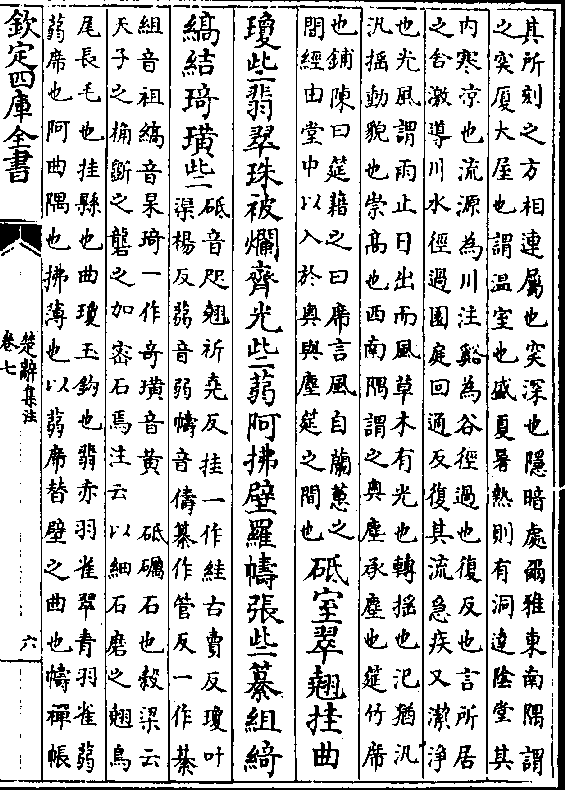 其所刻之方相連屬也突深也隱暗處爾雅東南隅謂
之突厦大屋也謂温室也盛夏暑熱則有洞達陰堂其
内寒凉也流源為川注谿為谷徑過也復反也言所居
之舍激導川水徑過園庭回通反復其流急疾又潔淨
也光風謂雨止日出而風草木有光也轉摇也汜猶汎
汎揺動貌也崇髙也西南隅謂之奥塵承塵也筵竹席
也鋪陳曰筵藉之曰席言風自蘭蕙之
間經由堂中以入於奥與塵筵之間也
砥室翠翹挂曲
瓊些翡翠珠被爛齊光些蒻阿拂壁羅幬張些纂組綺
縞結琦璜些
砥音咫翹祈堯反挂一作絓古賣反瓊叶
渠楊反蒻音弱幬音儔纂作管反一作綦
組音祖縞音杲琦一作奇璜音黄
砥礪石也榖梁云
天子之桷斵之礱之加密石焉注云以細石磨之翹鳥
尾長毛也挂縣也曲瓊玉鈎也翡赤羽雀翠青羽雀蒻
蒻席也阿曲隅也拂薄也以蒻席替壁之曲也幬襌帳
欽定四庫全書
楚辭集注
卷七
六